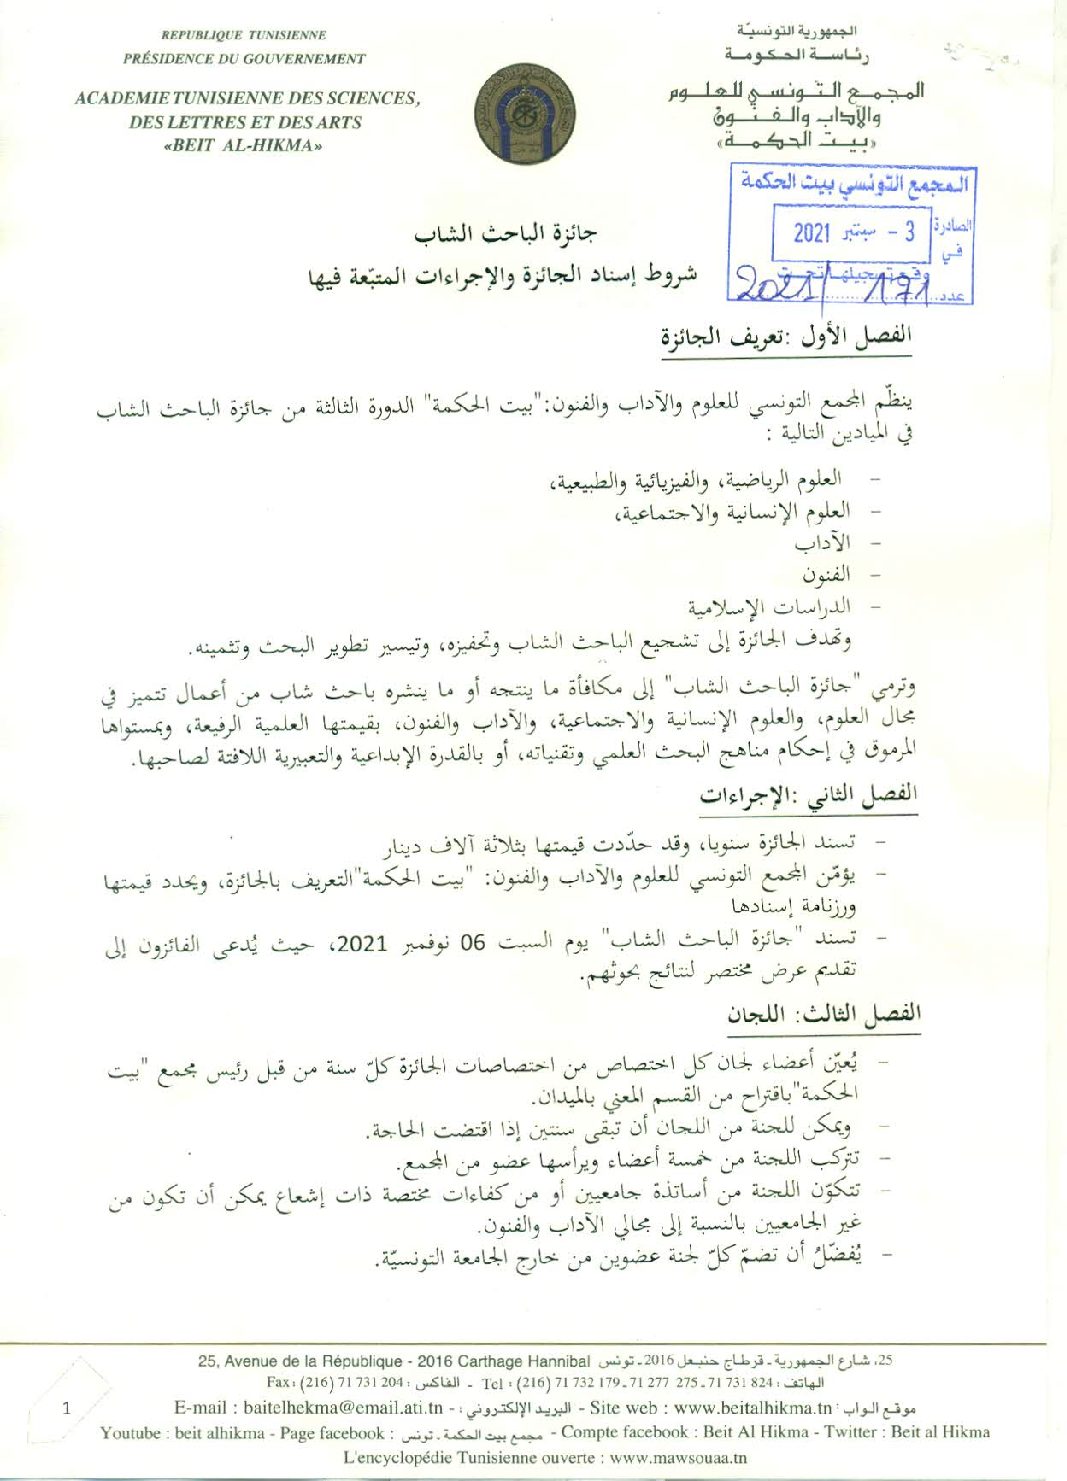 REPUBLIQUE TUNISIENNE
PRÉSIDENCE DU GOUVERNEMENT
ACADEMIE TUNISIENNE DES SCIENCES,
DES LETTRES ET DES ARTS
«BEIT AL-HIKMA»
الجمهورية التونسيّة
رئاسة الحكومة
المجمع التونسي للعلوم
والآداب والفنون
«بيت الحكمة»
المجمع التونسي بيت الحكمة
الصادرة
في
3 - سبتمبر 2021
وقع تسجيلها تحت
عدد 171 /2021
جائزة الباحث الشاب
شروط إسناد الجائزة والإجراءات المتبّعة فيها
الفصل الأول :تعريف الجائزة
ينظّم المجمع التونسي للعلوم والآداب والفنون:"بيت الحكمة" الدورة الثالثة من جائزة الباحث الشاب
في الميادين التالية :
- العلوم الرياضية، والفيزيائية والطبيعية،
- العلوم الإنسانية والاجتماعية،
- الآداب
- الفنون
- الدراسات الإسلامية
وتهدف الجائزة إلى تشجيع الباحث الشاب وتحفيزه، وتيسير تطوير البحث وتثمينه.
وترمي "جائزة الباحث الشاب" إلى مكافأة ما ينتجه أو ما ينشره باحث شاب من أعمال تتميز في
مجال العلوم، والعلوم الإنسانية والاجتماعية، والآداب والفنون، بقيمتها العلمية الرفيعة، وبمستواها
المرموق في إحكام مناهج البحث العلمي وتقنياته، أو بالقدرة الإبداعية والتعبيرية اللافتة لصاحبها.
الفصل الثاني :الإجراءات
- تسند الجائزة سنويا، وقد حدّدت قيمتها بثلاثة آلاف دينار
- يؤمّن المجمع التونسي للعلوم والآداب والفنون: "بيت الحكمة"التعريف بالجائزة، ويحدد قيمتها
ورزنامة إسنادها
- تسند "جائزة الباحث الشاب" يوم السبت 06 نوفمبر 2021، حيث يُدعى الفائزون إلى
تقديم عرض مختصر لنتائج بحوثهم.
الفصل الثالث: اللجان
- يُعيّن أعضاء لجان كل اختصاص من اختصاصات الجائزة كلّ سنة من قبل رئيس مجمع "بيت
الحكمة"باقتراح من القسم المعني بالميدان.
- ويمكن للجنة من اللجان أن تبقى سنتين إذا اقتضت الحاجة.
- تتركب اللجنة من خمسة أعضاء ويرأسها عضو من المجمع.
- تتكوّن اللجنة من أساتذة جامعيين أو من كفاءات مختصة ذات إشعاع يمكن أن تكون من
غير الجامعيين بالنسبة إلى مجالي الآداب والفنون.
- يُفضّلُ أن تضمّ كلّ لجنة عضوين من خارج الجامعة التونسيّة.
25, Avenue de la République - 2016 Carthage Hannibal 25، شارع الجمهورية ـ قرطاج حنبعل 2016ـ تونس
Fax : (216) 71 731 204 : الفاكس - Tel : (216) 71 732 179 - 71 277 275 - 71 731 824 : الهاتف
E-mail : baitelhekma@email.ati.tn - : البريد الإلكتروني - Site web : www.beitalhikma.tn : موقع الواب
Youtube : beit alhikma - Page facebook : مجمع بيت الحكمة ـ تونس - Compte facebook : Beit Al Hikma - Twitter : Beit al Hikma
L'encyclopédie Tunisienne ouverte : www.mawsouaa.tn
1